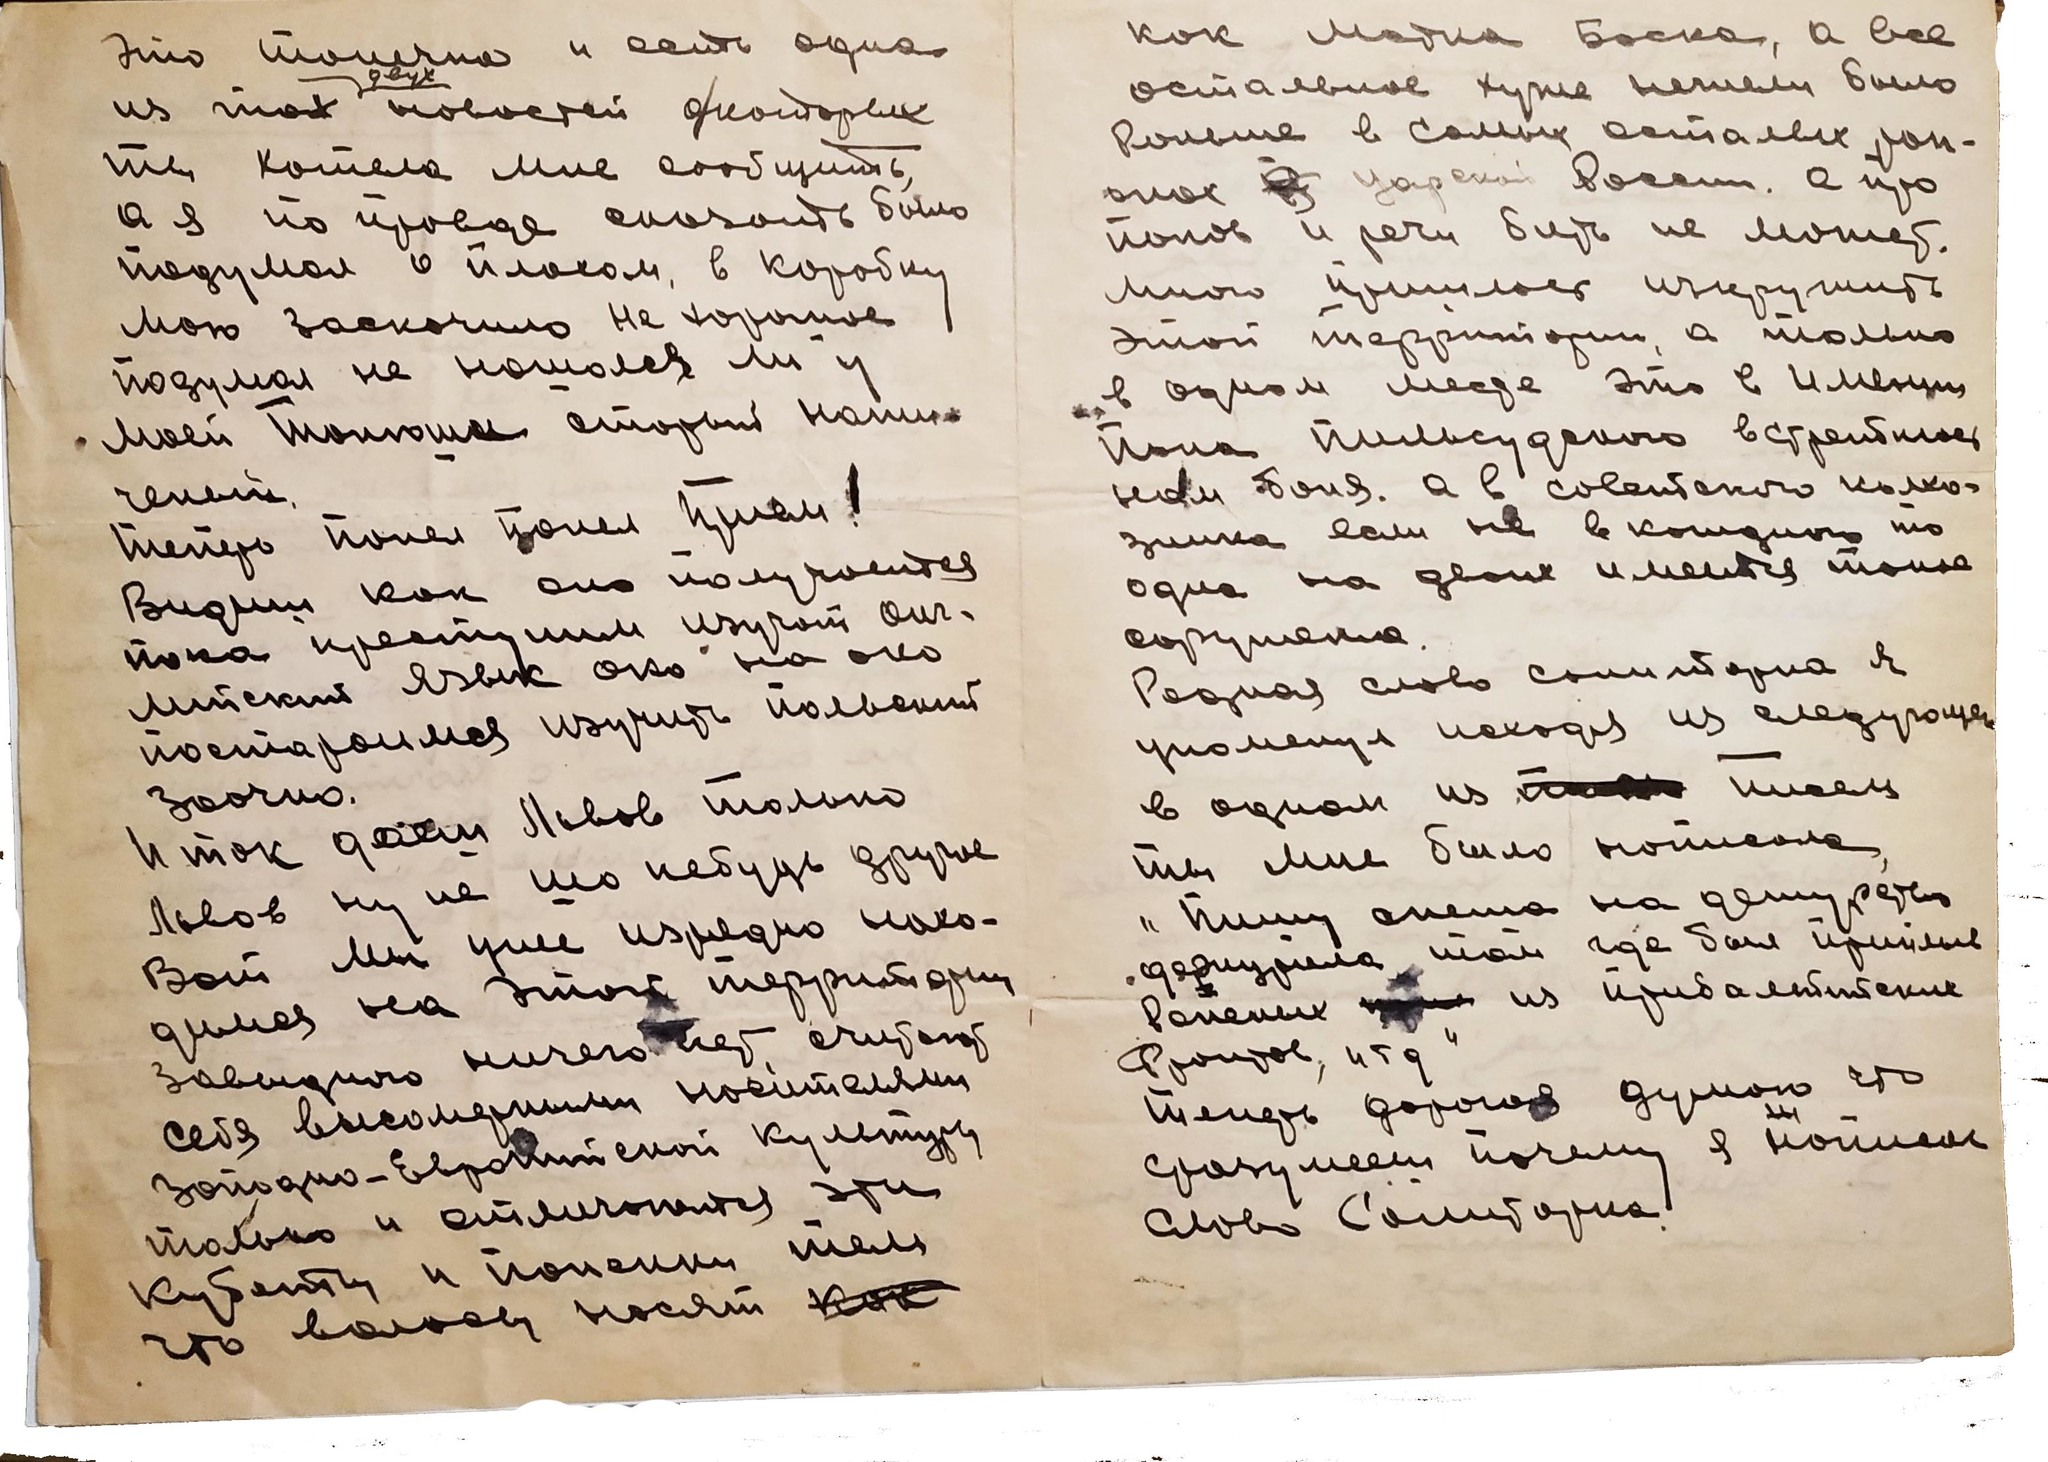 Это Тонечка и есть одна
из тех двух новостей о которых
ты хотела мне сообщить,
а я по правде сказать было
подумал о плохом, в коробку
мою заскочило не хорошое
подумал не нашолся ли у
моей Тонюши старый
Теперь понял понял Прием!
Видиш как оно получается
пока изучат анг-
лийский язык око на око
постараимся изучить польский
заочно.
И так даеш Львов только
Львов ну не что небудь другое
Вот мы уже изрядно нахо-
димся на этой территории
завидного ничего нет, считают
себя высомерными носителями
западно-Европпийской культуры
только и отличаются эти
и паненки тем
что волосы носят как
как Матка Боска, а все
остальное хуже нежели было
раньше в самых осталых рай-
онах царской Росеии. а про
панов и речи быть не может.
Много пришлось искружить
этой территории, а только
в одном месде это в Имении
Пана Пильсудского встретилась
нам баня. а в советского колхо-
зника если не в каждого то
одна на двоих имеится такое
соружение.
Родная слово санитарка я
упоменул исходя из следующ
в одном из писем
ты мне было написала,
"Пишу спеша на дежурство
дежурила там где был приплыв
Раненых из прибалтийских
Фронтов, итд"
Теперь дорогая думаю что
сразумееш почему я написал
слово Санитарка.